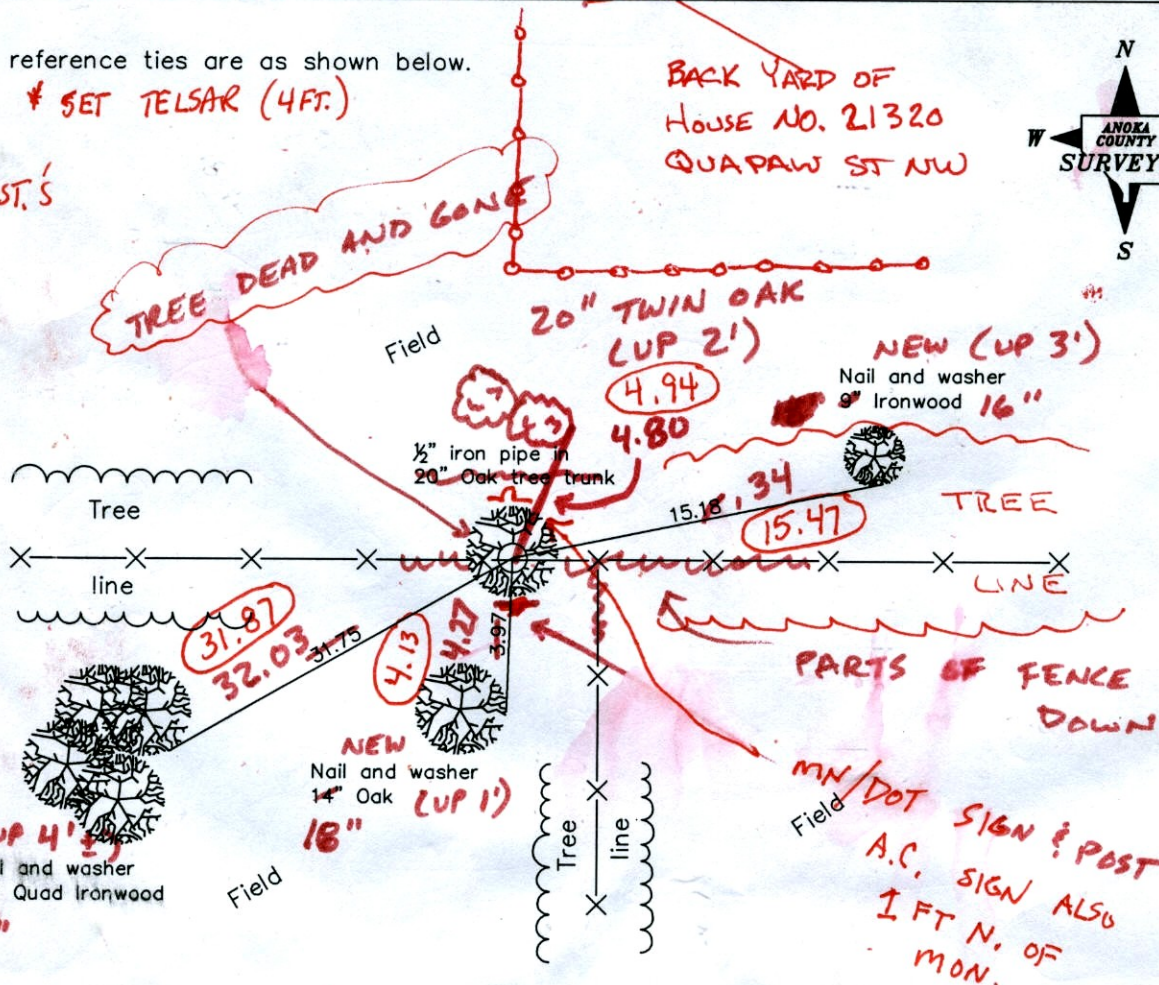 reference ties are as shown below.
* SET TELSAR (4FT.)
ST.'S
BACK YARD OF
HOUSE NO. 21320
QUAPAW ST NW
N
W
ANOKA
COUNTY
SURVEY
S
TREE DEAD AND GONE
Field
20" TWIN OAK
(UP 2')
4.94
4.80
NEW (UP 3')
Nail and washer
9" Ironwood 16"
½" iron pipe in
20" Oak tree trunk
15.18 .34
15.47
Tree
line
TREE
LINE
31.87
32.03
31.75
4.13
4.27
3.97
PARTS OF FENCE
DOWN
NEW
Nail and washer
14" Oak (UP 1')
18"
UP 4'±)
and washer
Quad Ironwood
Field
Tree
line
Field
MN/DOT SIGN & POST
A.C. SIGN ALSO
1 FT N. OF
MON.